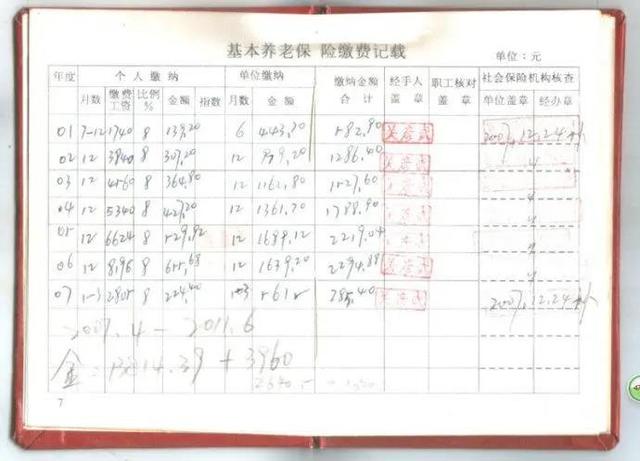 基本养老保 险缴费记载
单位：元
年度 个人缴纳 单位缴纳 缴纳金额合计 经手人盖章 职工核对盖章 社会保险机构核查
月数 缴费工资 比例% 金额 指数 月数 金额 单位盖章 经办章
01 7-12 1740 8 139.20 6 443.70 582.90 2007.12.24
02 12 3840 8 307.20 12 979.20 1286.40 〃
03 12 4560 8 364.80 12 1162.80 1527.60 〃
04 12 5340 8 427.20 12 1361.70 1788.90 〃
05 12 6624 8 529.92 12 1689.12 2219.04 〃
06 12 8196 8 655.68 12 1639.20 2294.88 〃
07 1-3 2805 8 224.40 1-3 561 785.40 2007.12.24
2007.4 — 2011.6
金: 14.39 + 3960
7